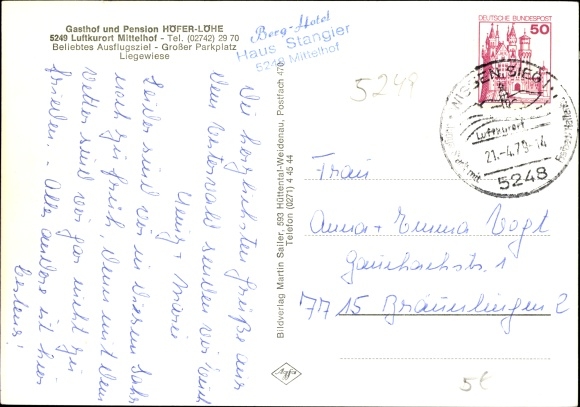 Gasthof und Pension HÖFER-LÖHE
5249 Luftkurort Mittelhof - Tel. (02742) 29 70
Beliebtes Ausflugsziel - Großer Parkplatz
Liegewiese
Berg-Hotel
Haus Stangier
5248 Mittelhof
5249
DEUTSCHE BUNDESPOST
50
WISSEN, SIEG 1
Luftkurort
21.-4.79-14
5248
Die herzlichsten Grüße aus
dem Westerwald senden wir Euch
Marie
Leider sind wir in diesem Jahr
noch zu früh, denn mit dem
Wetter sind wir gar nicht zu
frieden. - Alles andere ist hier
bestens!
Bildverlag Martin Sailer, 593 Hüttental-Weidenau, Postfach 470
Telefon (0271) 4 45 44
Frau
Anna-Emma Vogt
Gauchachstr. 1
7715 Bräunlingen 2
5€